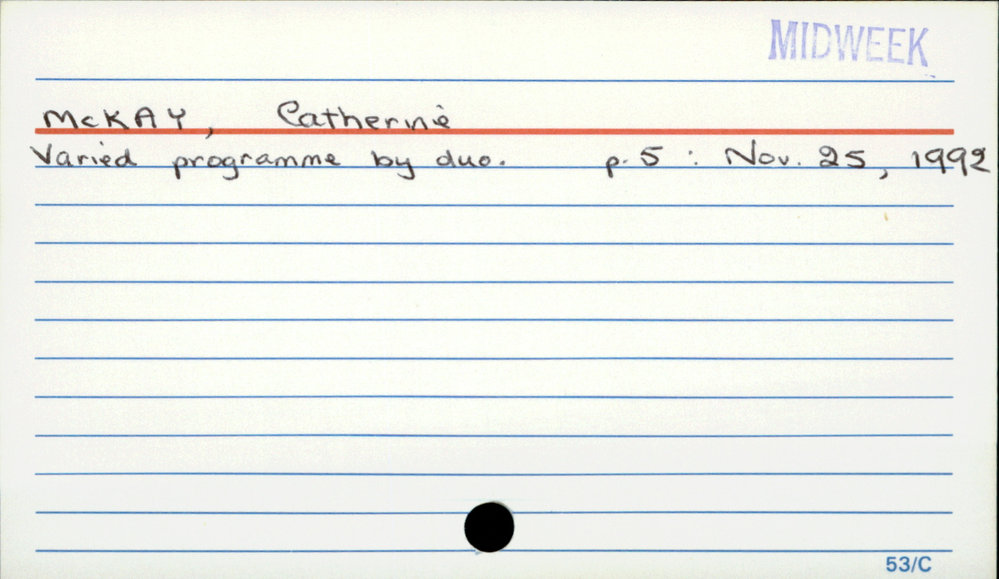 MIDWEEK
McKAY, Catherine
Varied programme by duo. p. 5 : Nov. 25, 1992
53/C